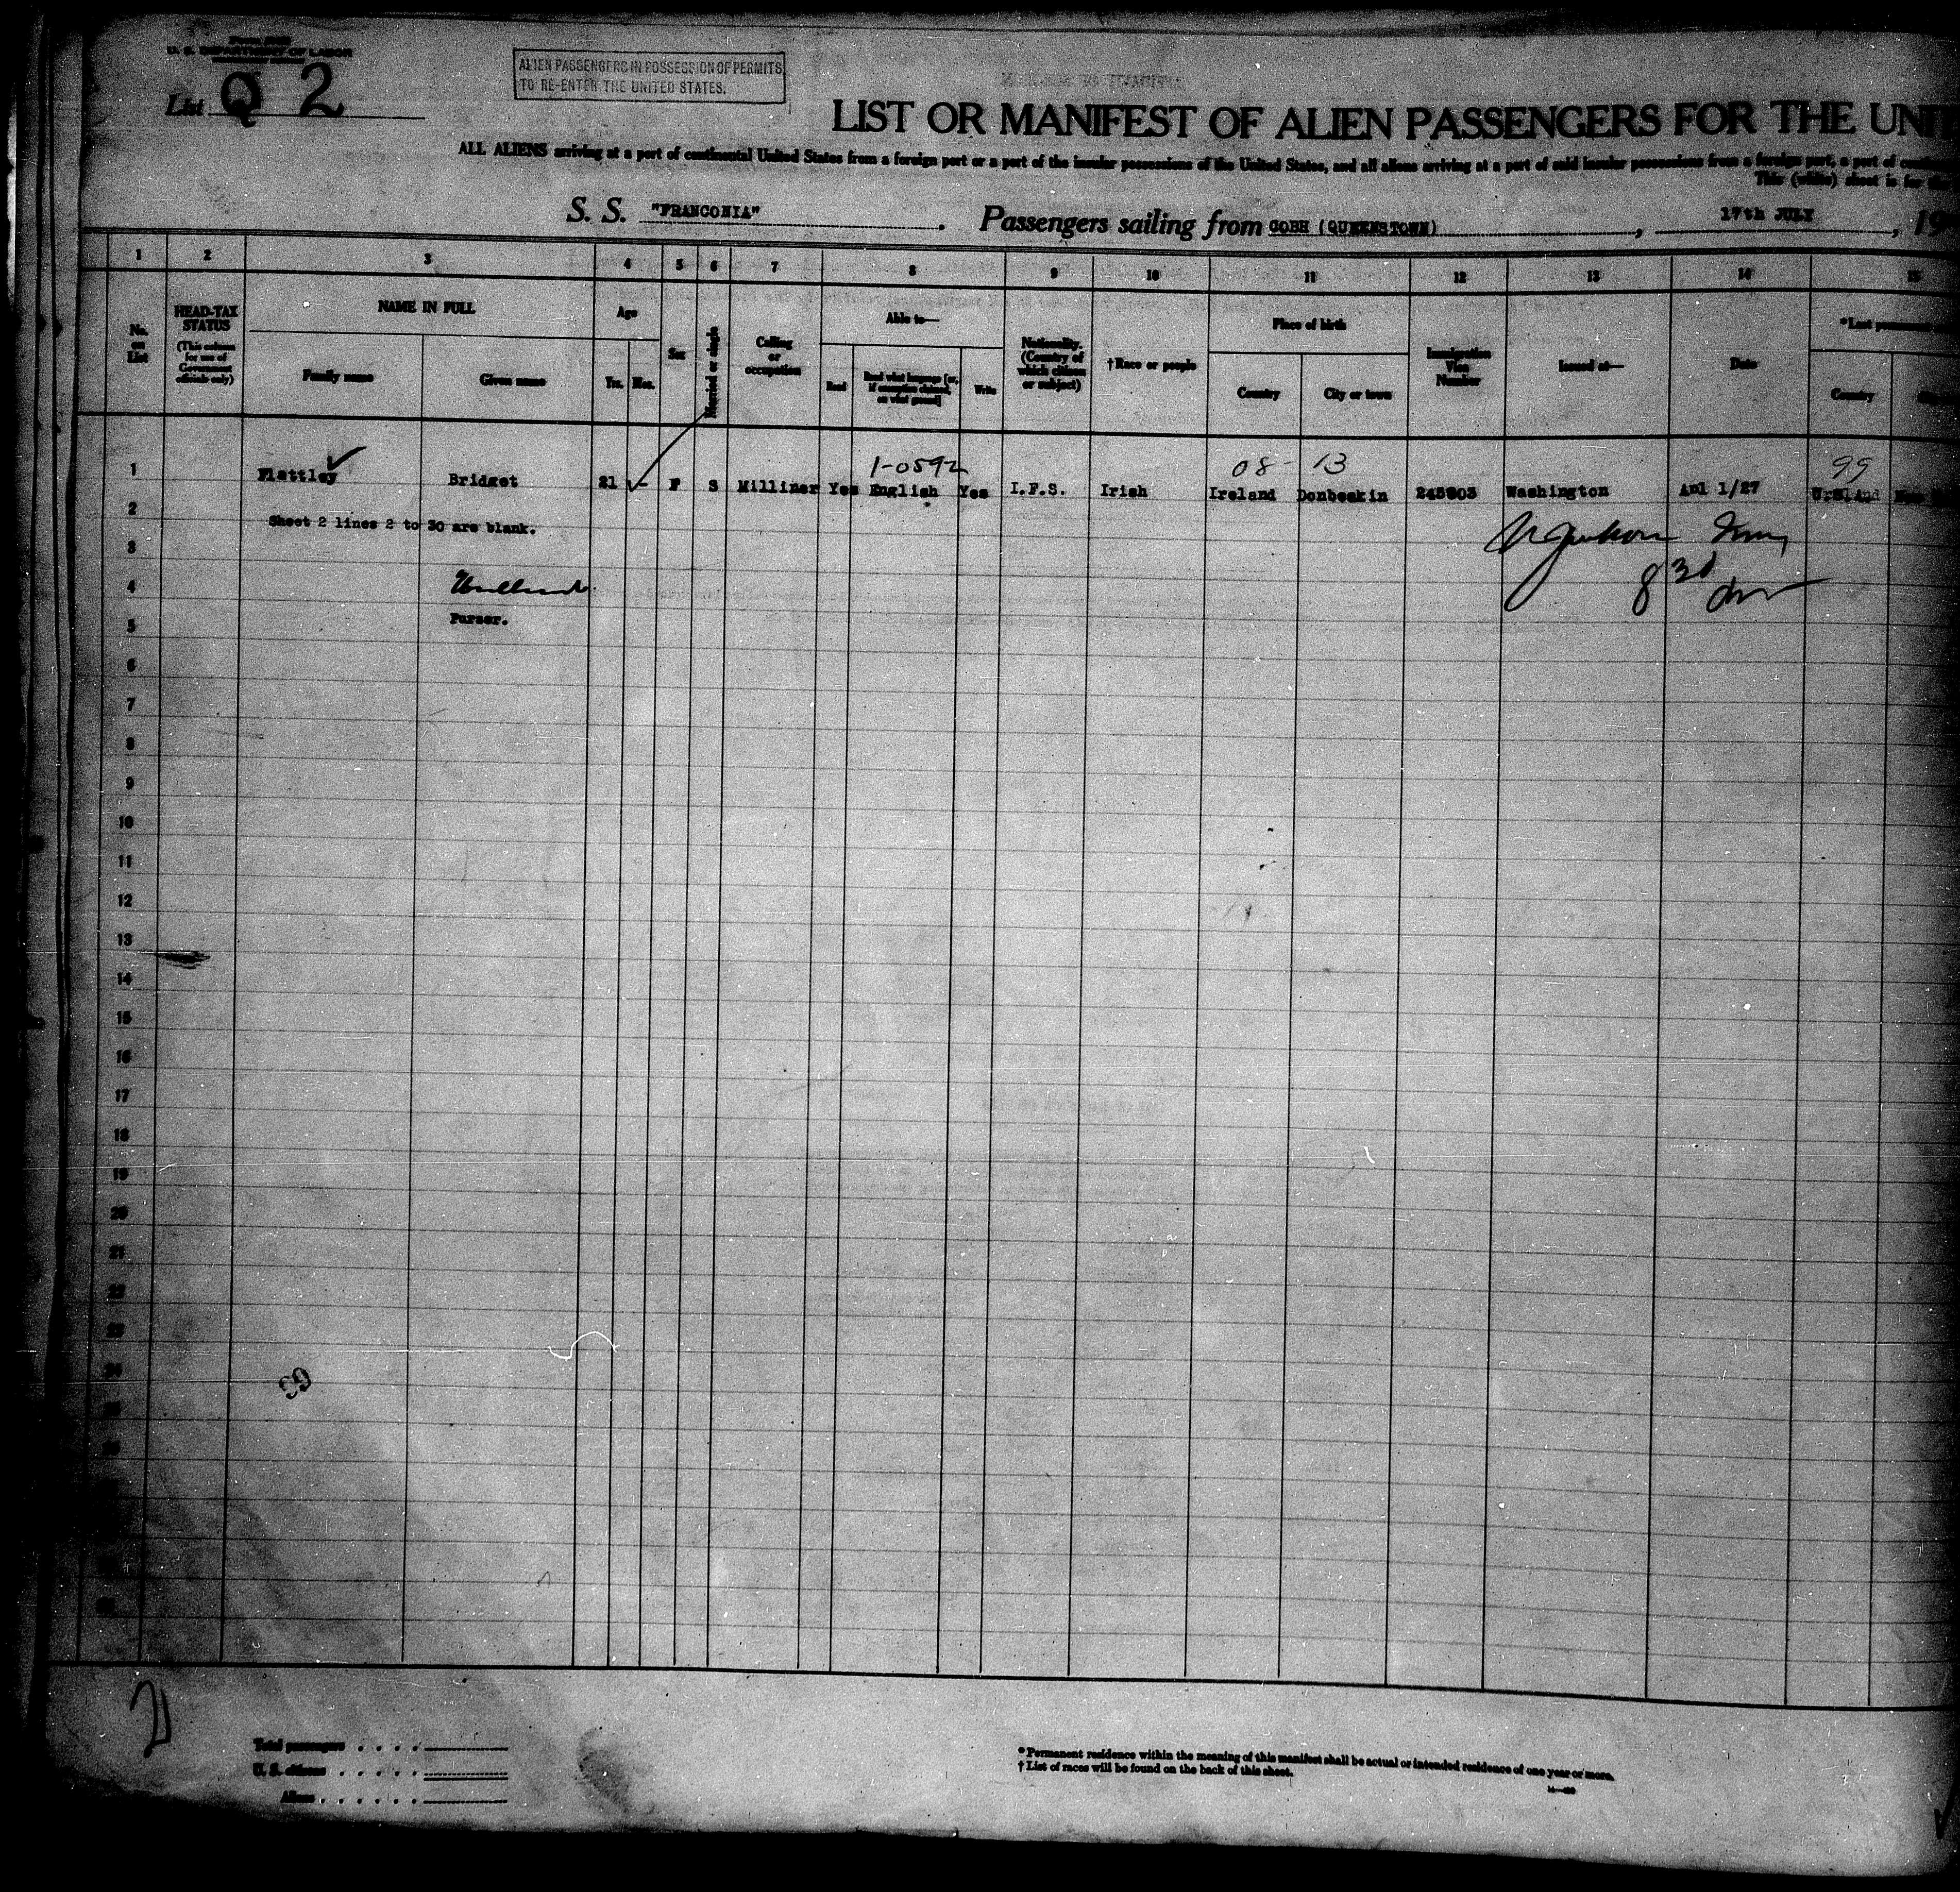 U. S. DEPARTMENT OF LABOR
List Q 2
ALIEN PASSENGERS IN POSSESSION OF PERMITS
TO RE-ENTER THE UNITED STATES.
LIST OR MANIFEST OF ALIEN PASSENGERS FOR THE UNIT
ALL ALIENS arriving at a port of continental United States from a foreign port or a port of the insular possessions of the United States, and all aliens arriving at a port of said insular possessions from a foreign port, a port of
This (white) sheet is for
S. S. "FRANCONIA". Passengers sailing from COBH (QUEENSTOWN), 17th JULY, 19
1 2 3 4 5 6 7 8 9 10 11 12 13 14 15
No. on List
HEAD-TAX STATUS
(This column for use of Government officials only)
NAME IN FULL
Family name
Given name
Age
Yrs. Mos.
Sex
Married or single
Calling or occupation
Able to—
Read
Read what language [or, if exemption claimed, on what ground]
Write
Nationality. (Country of which citizen or subject)
†Race or people
Place of birth
Country
City or town
Immigration Visa Number
Issued at—
Date
*Last permanent
Country
1-0592 08- 13 99
1 Flattley Bridget 21 - F S Milliner Yes English Yes I.F.S. Irish Ireland Donbeakin 245803 Washington Apl 1/27
2 Sheet 2 lines 2 to 30 are blank.
3
4
5 Purser.
6
7
8
9
10
11
12
13
14
15
16
17
18
19
20
21
22
23
24
69
Total passengers
U. S. citizens
Aliens
* Permanent residence within the meaning of this manifest shall be actual or intended residence of one year or more.
† List of races will be found on the back of this sheet.